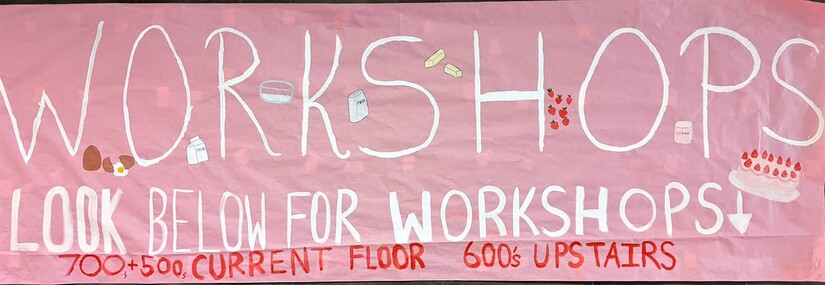 WORKSHOPS
LOOK BELOW FOR WORKSHOPS
700s+500s CURRENT FLOOR 600's UPSTAIRS